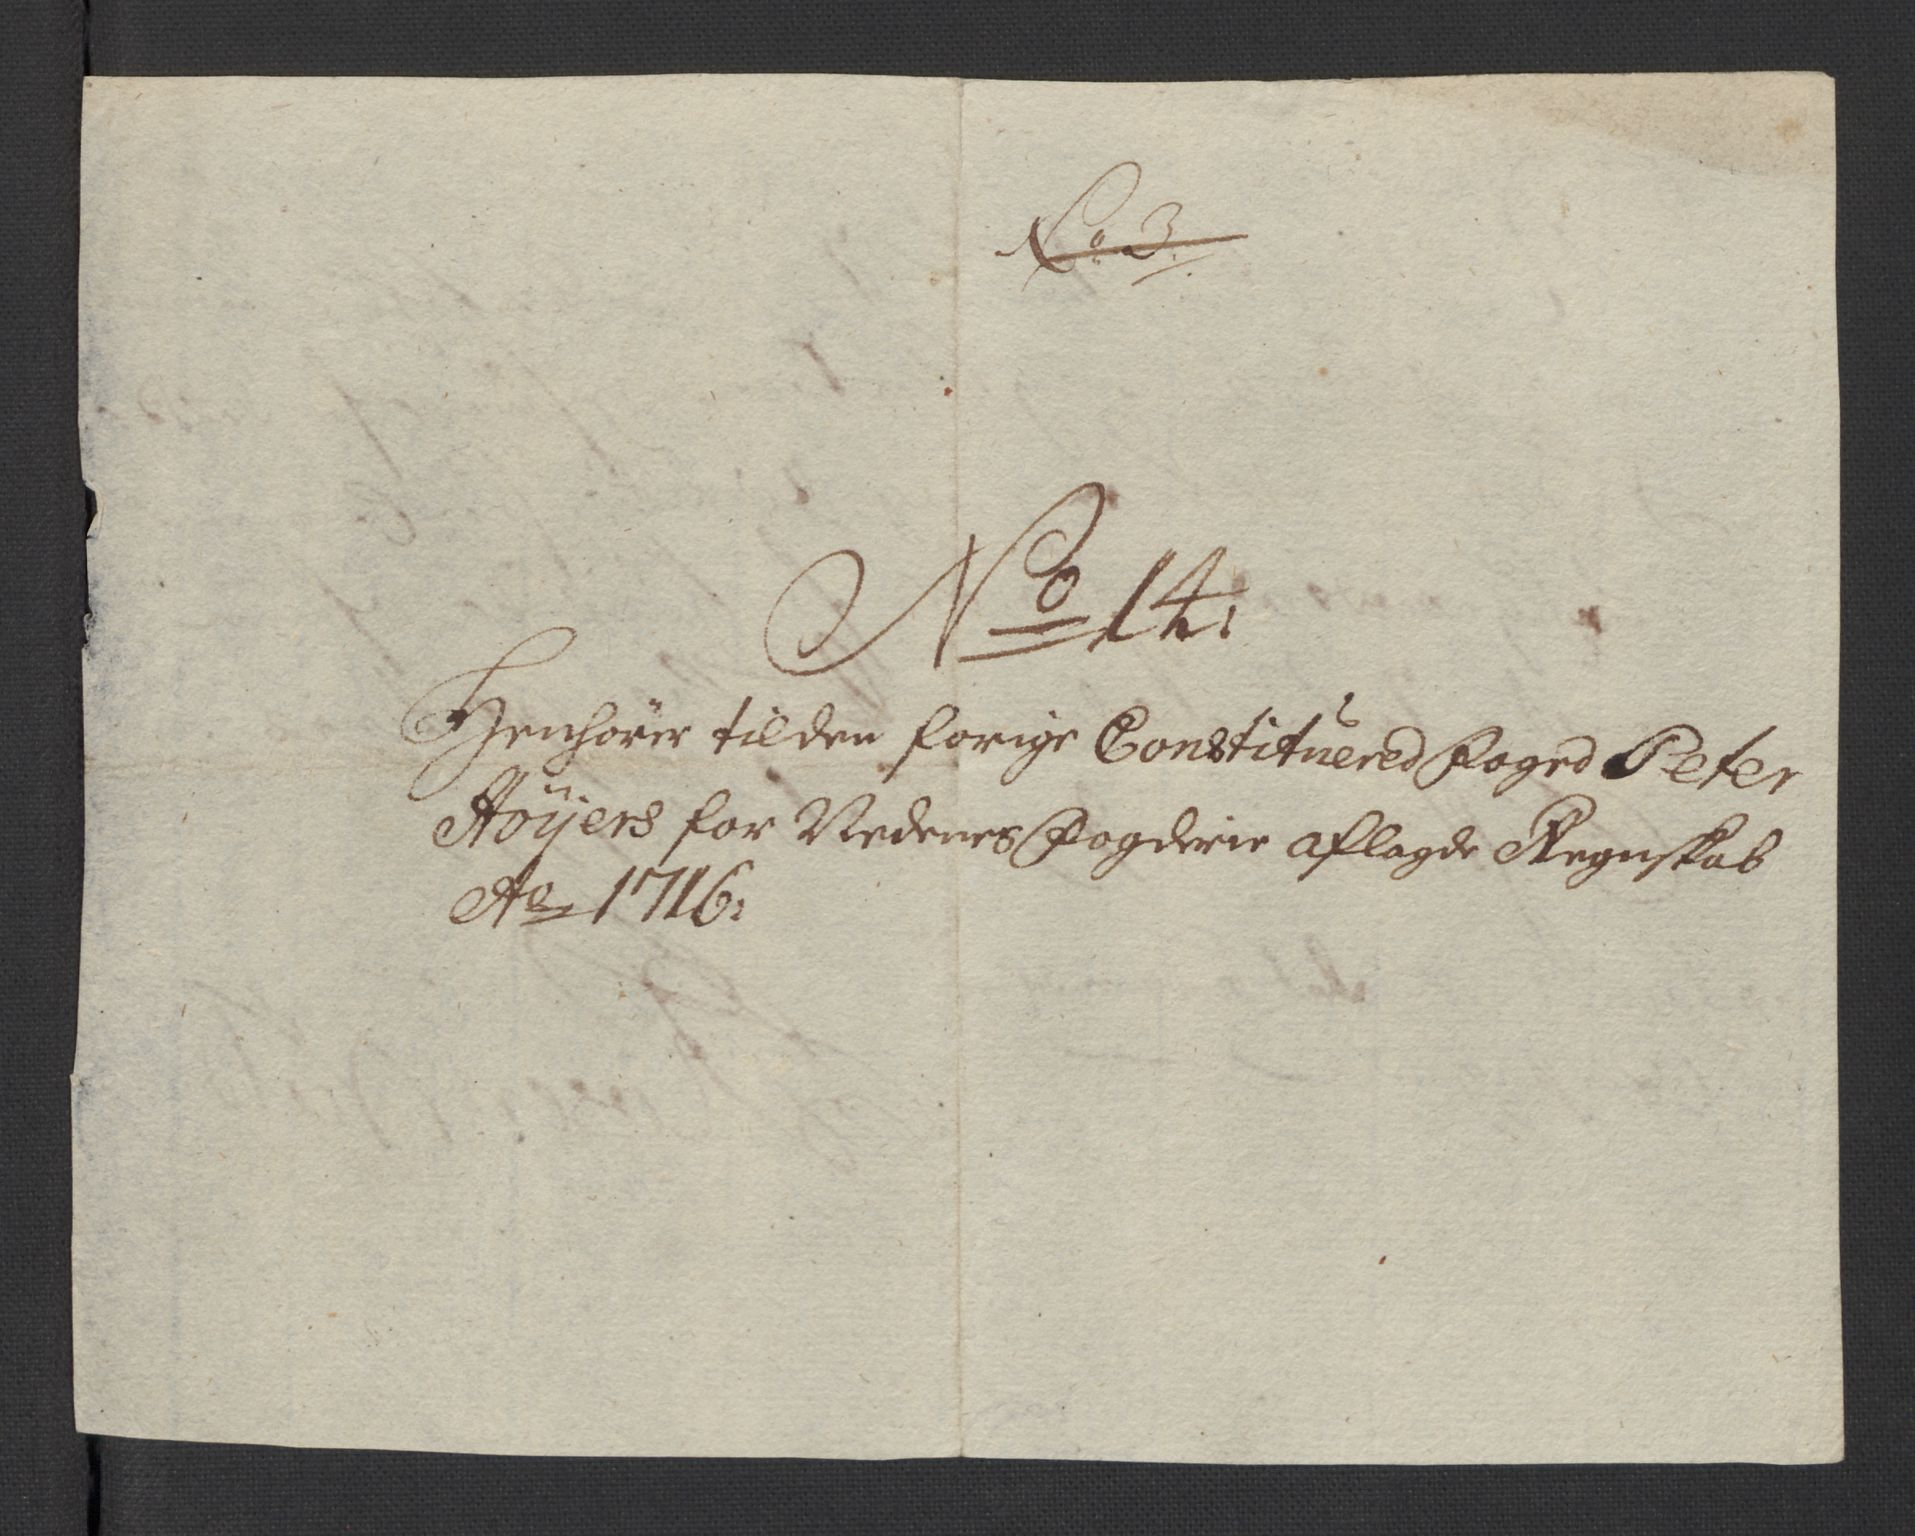 No. 3.
No 14:
Henhører til den forige Constituered foged Peter
Høÿers for Nedenes fogderie aflagde Regnskab
Ao 1716: